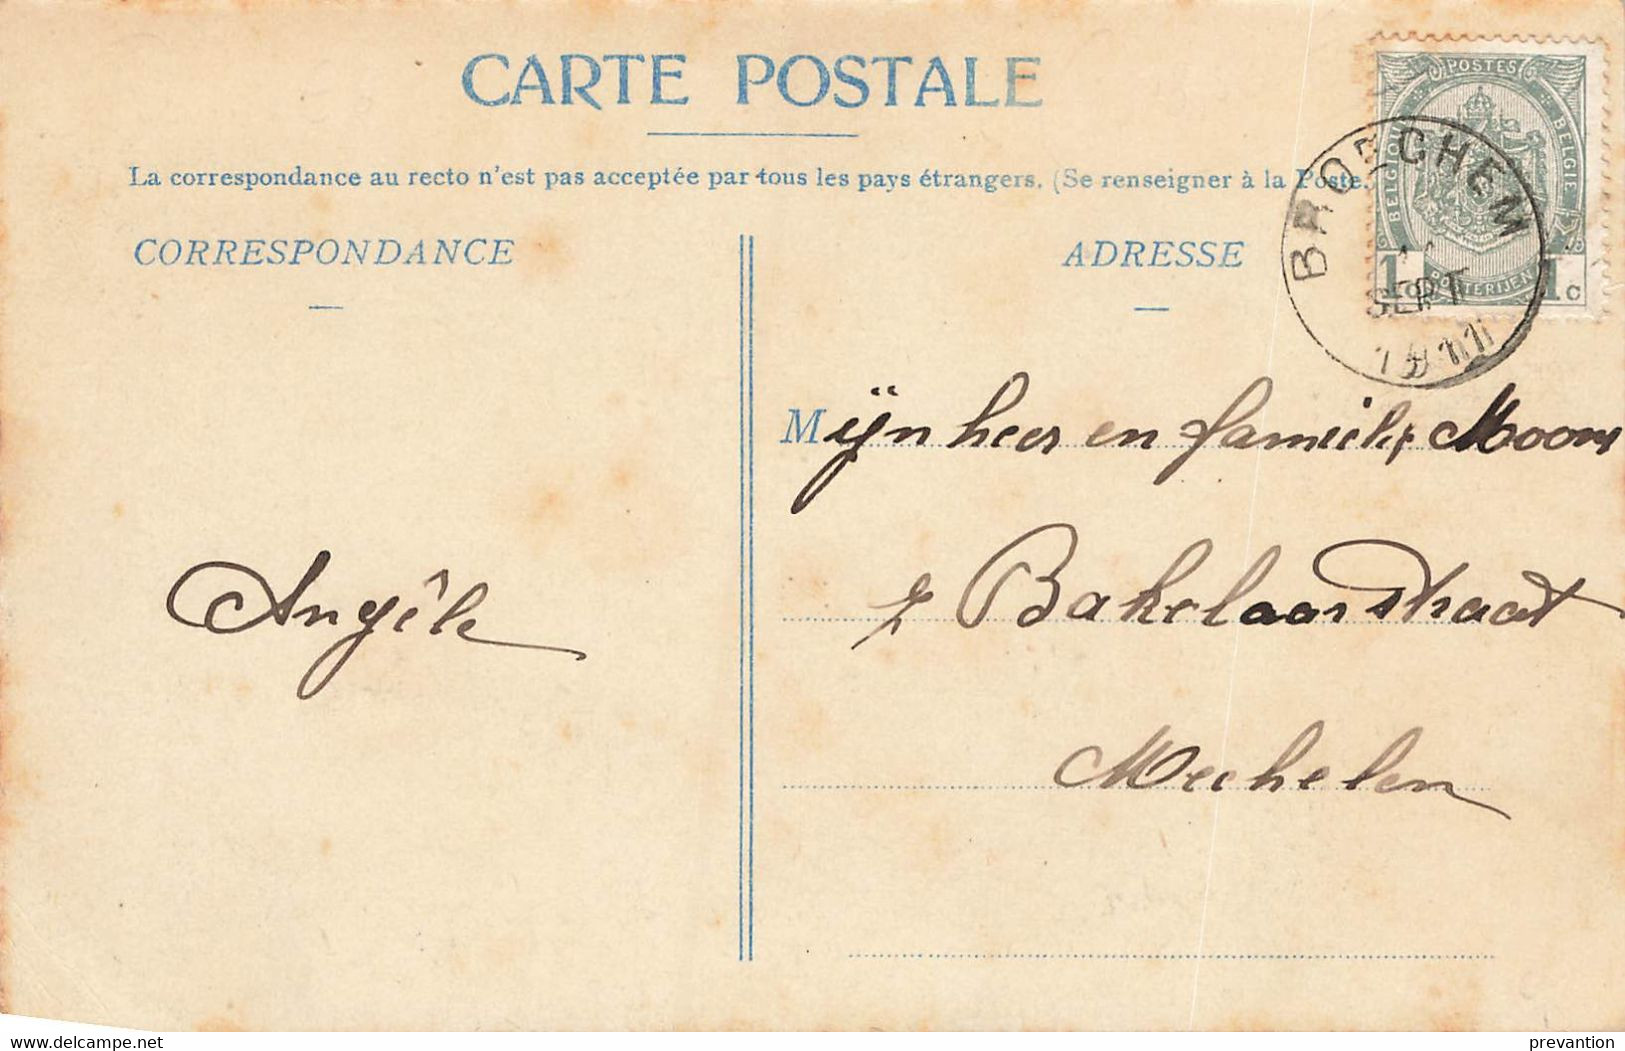 CARTE POSTALE
La correspondance au recto n'est pas acceptée par tous les pays étrangers. (Se renseigner à la Poste.
CORRESPONDANCE
ADRESSE
POSTES
BELGIQUE
BELGIE
POSTERIJEN
1c
1c
BROECHEM
SEPT
Mÿn heer en familie Moons
Bakelaarstraat
Mechelen
Angèle
delcampe.net
prevantion